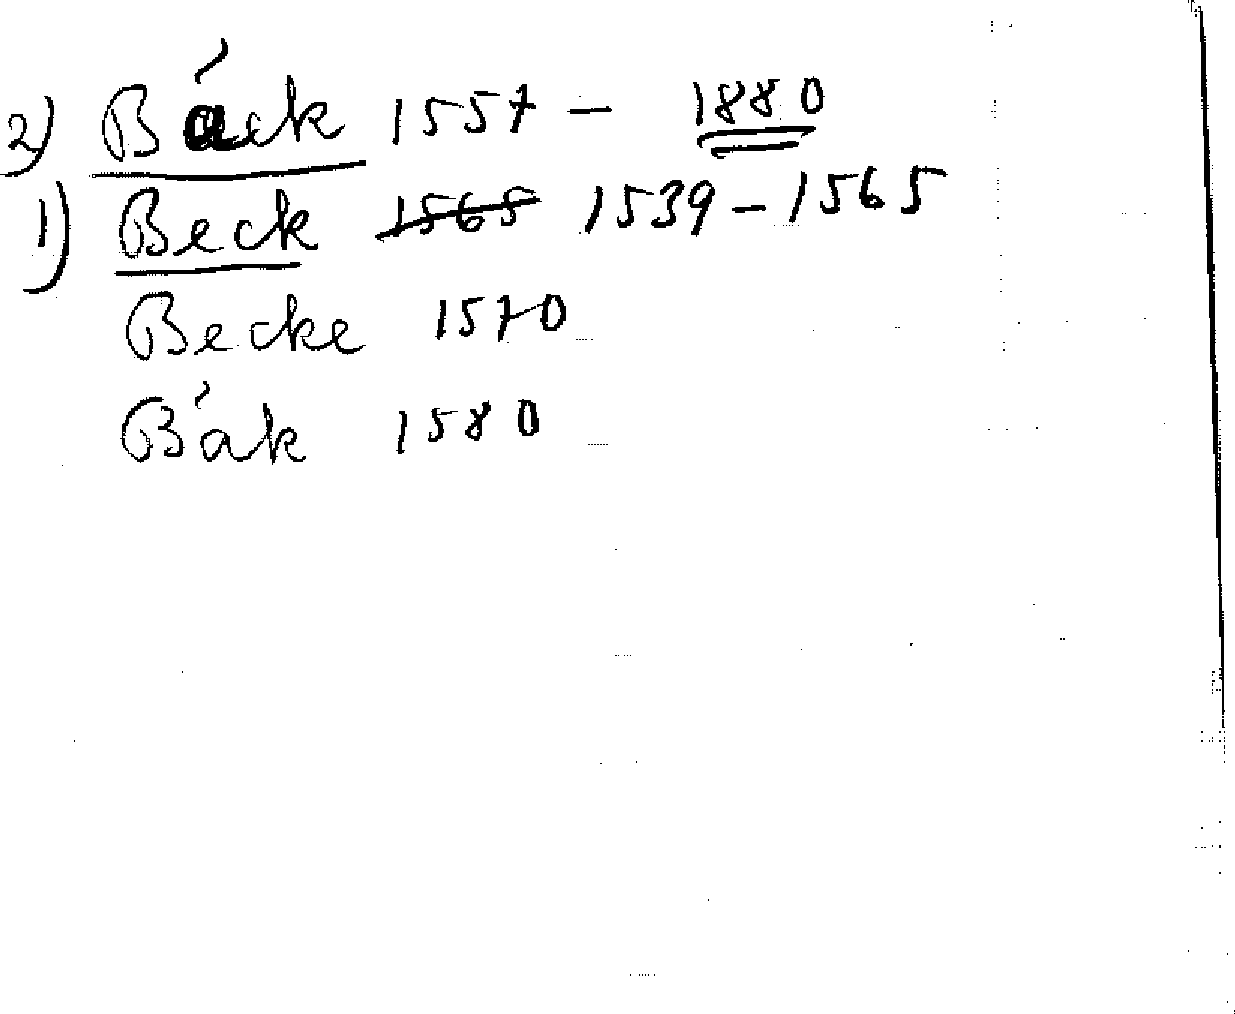 2) Báck 1557 - 1880
1) Beck 1565 1539-1565
Becke 1570
Bák 1580